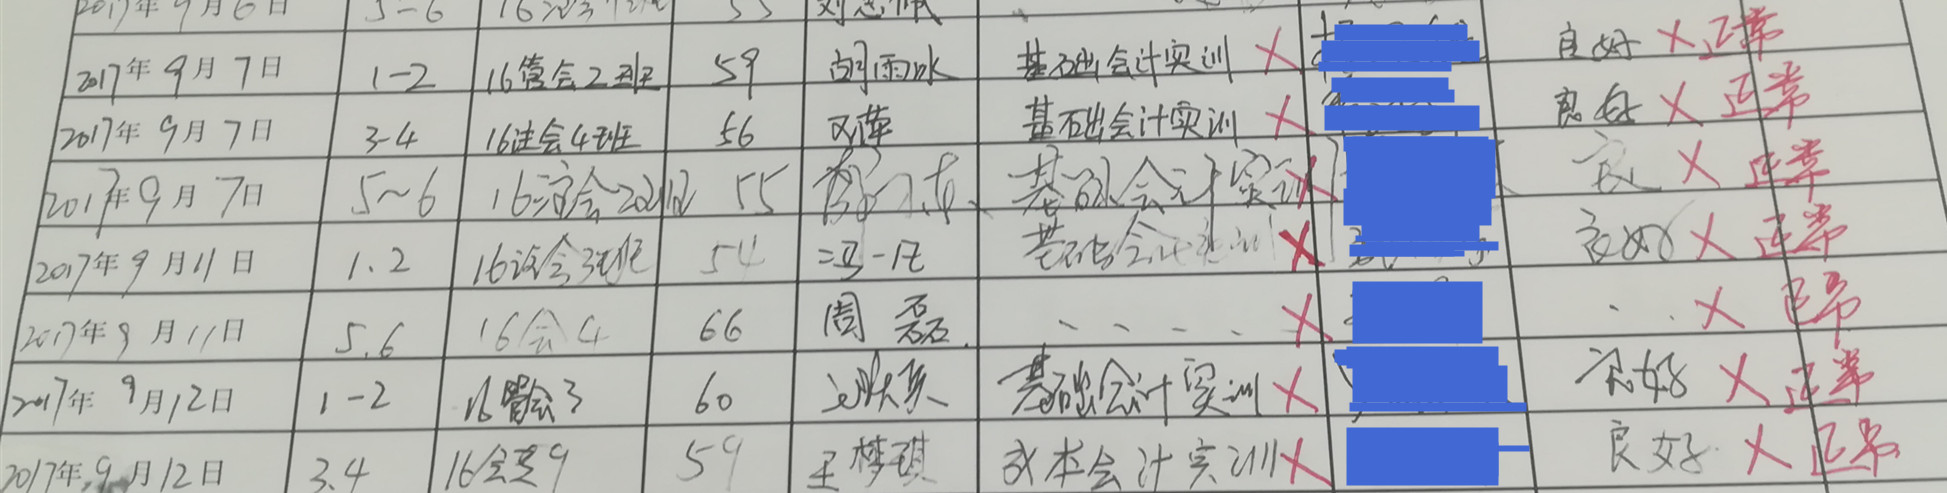 2017年9月6日 5-6 55
2017年9月7日 1-2 16管会2班 59 胡雨冰 基础会计实训 × 良好 × 正常
2017年9月7日 3-4 16注会4班 56 邓萍 基础会计实训 × 良好 × 正常
2017年9月7日 5~6 55 基础会计实训 × 良 × 正常
2017年9月11日 1.2 16注会3班 54 冯一凡 基础会计实训 × 良好 × 正常
2017年9月11日 5.6 16会4 66 周磊 × × 正常
2017年9月12日 1-2 60 基础会计实训 × 良好 × 正常
2017年9月12日 3.4 59 王梦琪 成本会计实训 × 良好 × 正常